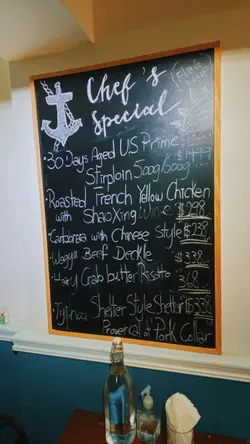 Chef's
Special
30 Days Aged US Prime
Stirploin 500g/600g
Roasted French Yellow Chicken
with ShaoXing Wine $298
Carbonara with Chinese Style $238
Wagyu Beef Deckle $338
Hairy Crab butter Risotto 368
Shelter Style Shelter $338
Provencal Pork Collar